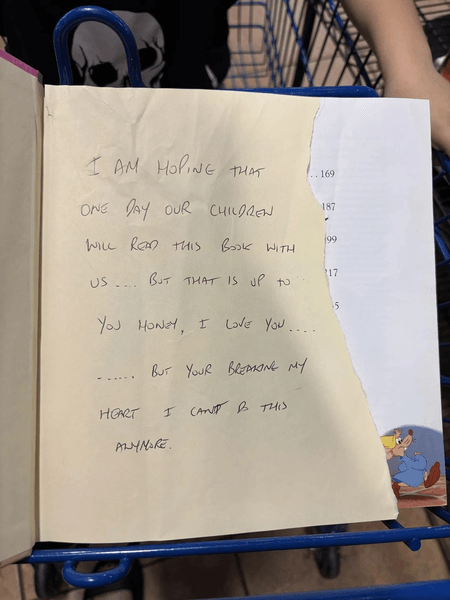 I AM HOPING THAT
..169
ONE DAY OUR CHILDREN
187
WILL READ THIS BOOK WITH
99
US .... BUT THAT IS UP TO
17
YOU HONEY, I LOVE YOU ....
5
...... BUT YOUR BREAKING MY
HEART I CANT D THIS
ANYMORE.